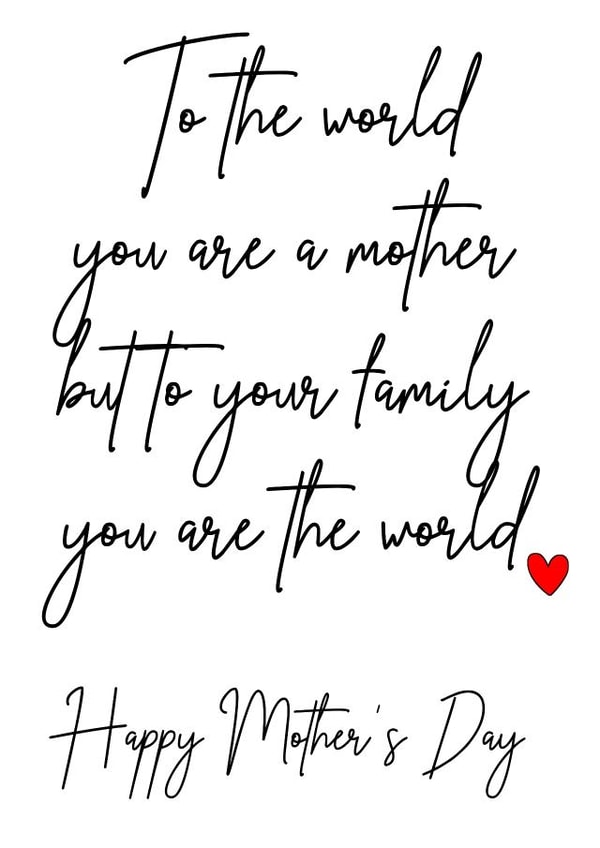 To the world
you are a mother
but to your family
you are the world
Happy Mother's Day